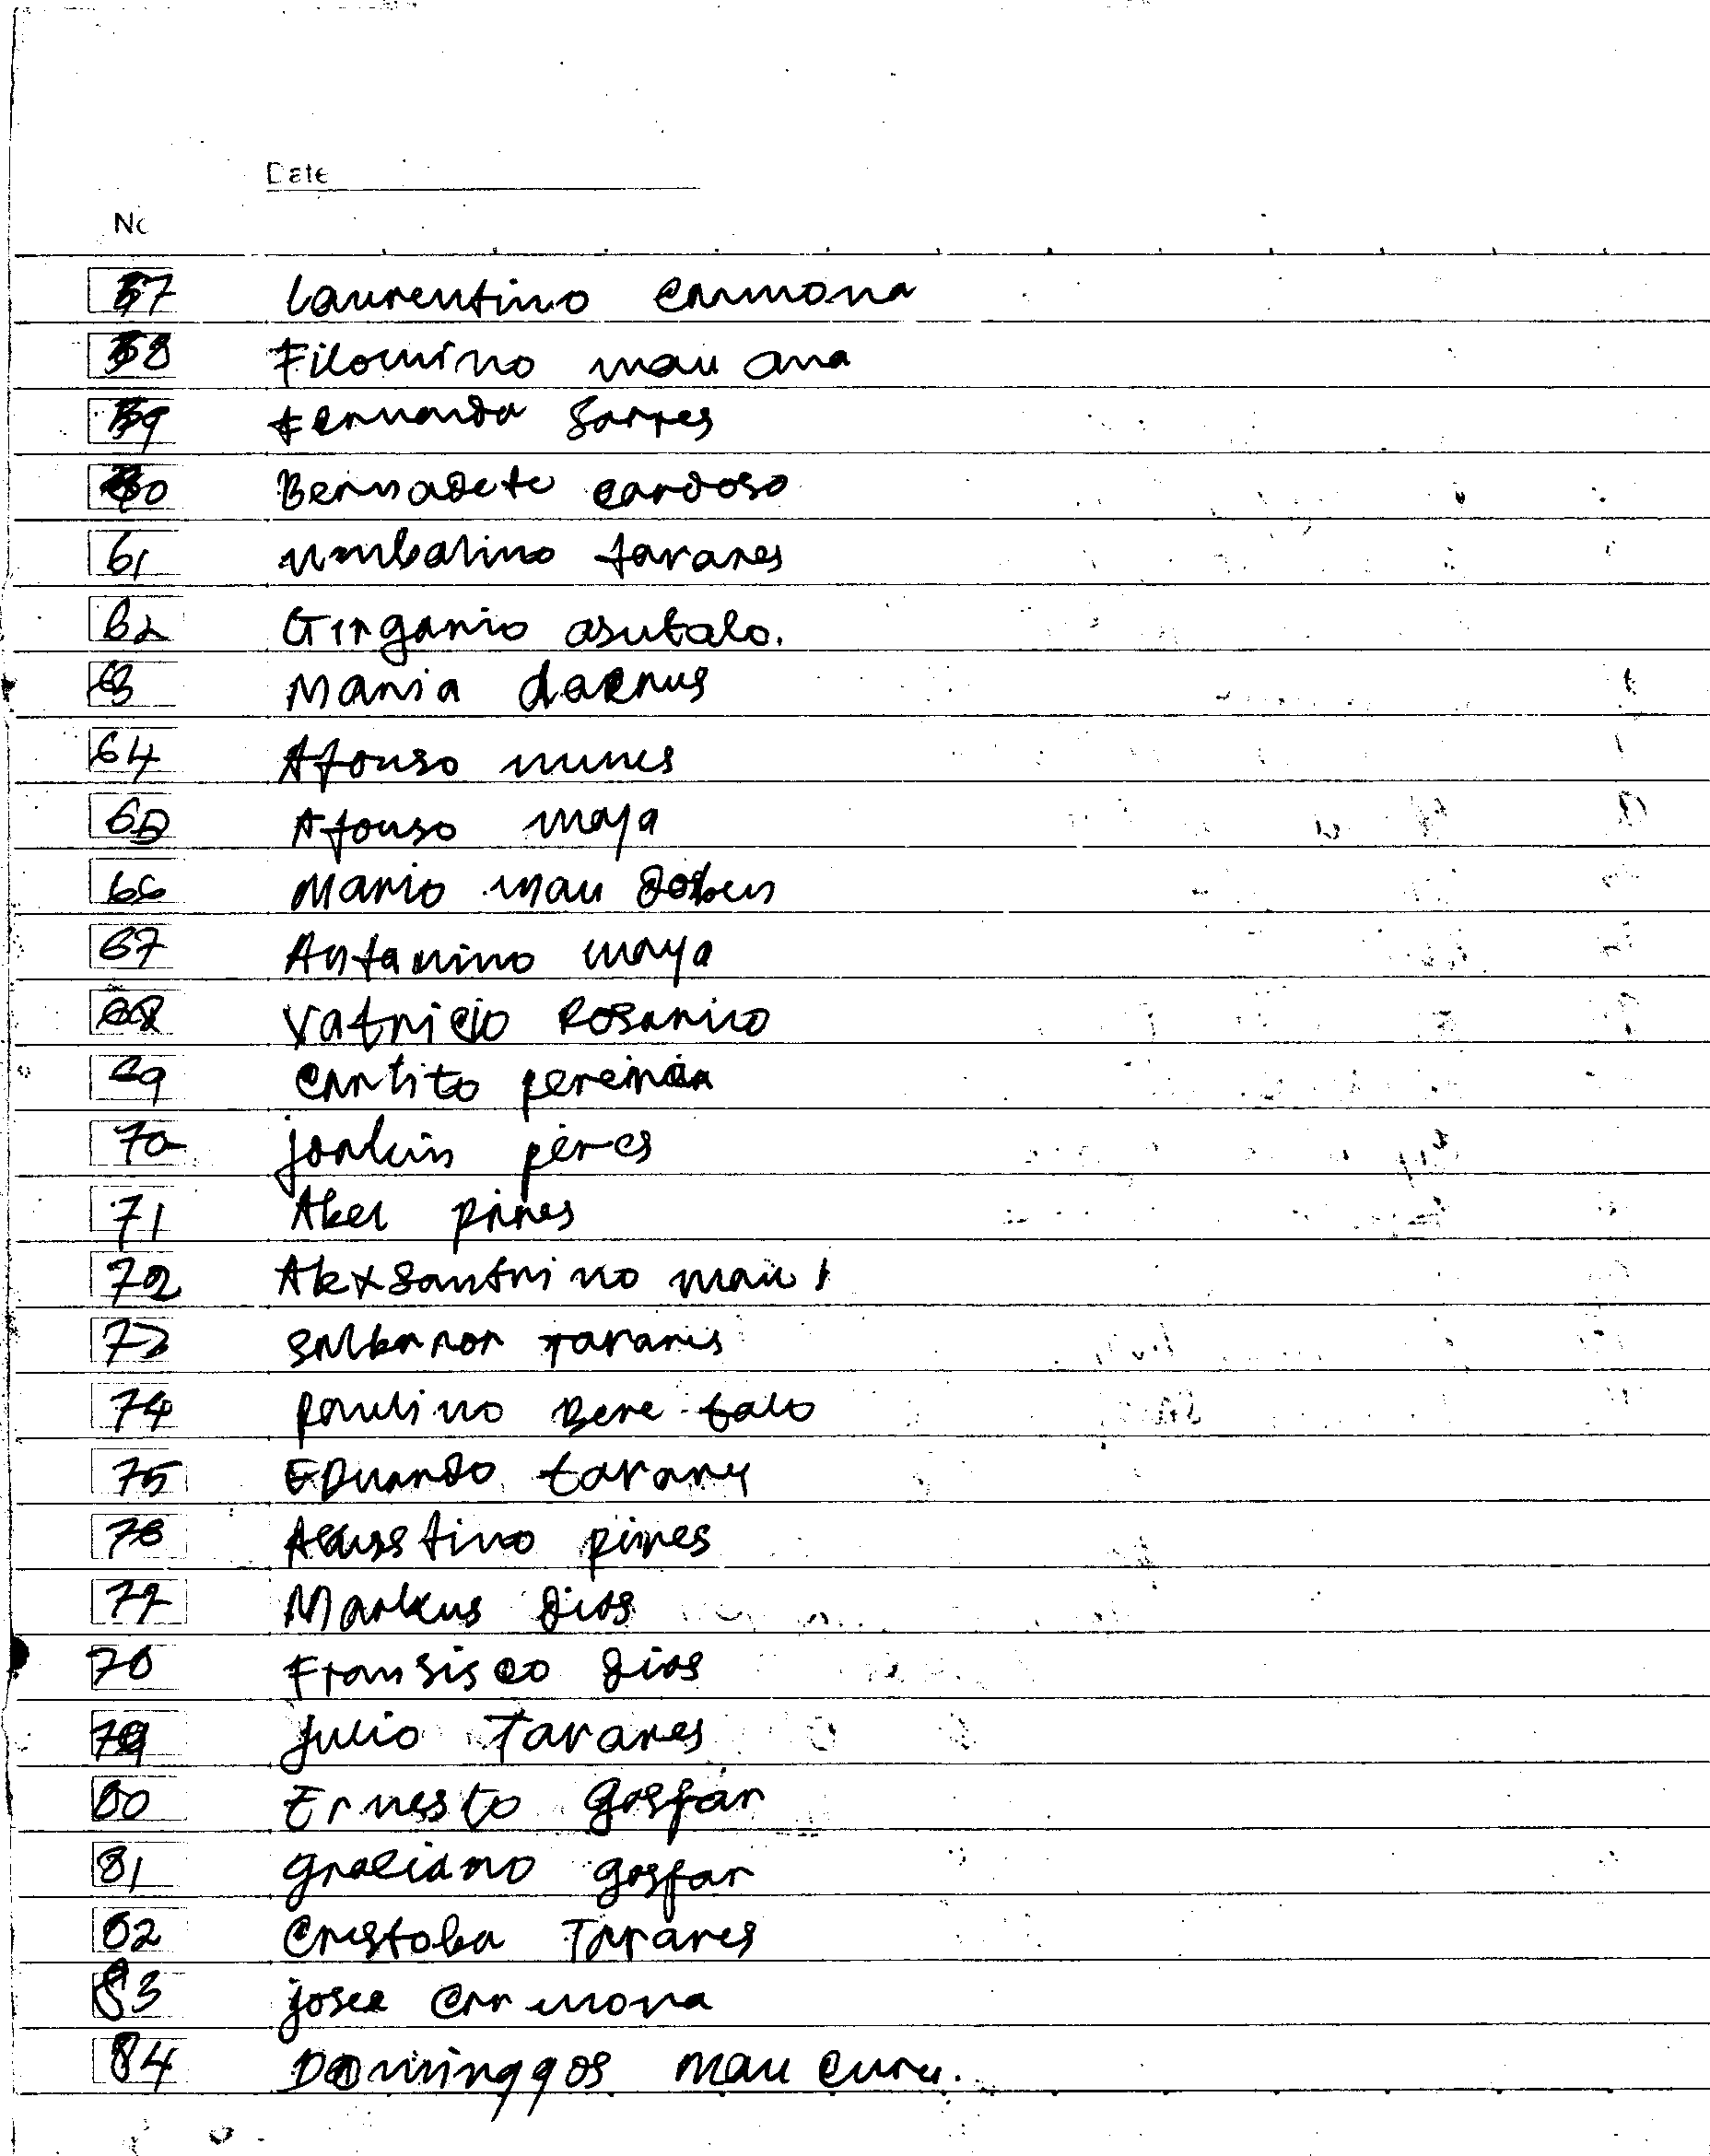 Date
No
57 Laurentino Carmona
58 Filomino mau ana
59 Fernanda Sarres
60 Bernadete cardoso
61 umbalino tavares
62 Girganio asutalo.
63 Maria
64 Afonso nunes
65 Afonso maya
66 Mario mau
67 Antanino maya
68 Vatricio Rosario
69 Carlito
70 joakin peres
71 Abel pires
72 Alexsantrino mau
73 Salbador Tavares
74 paulino Bere talo
75 EDuardo tavares
76 Agustino pires
77 Markus dias
78 Fransisco dias
79 Julio Tavares
80 Ernesto gaspar
81 graciano gaspar
82 Cristoba Tavares
83 josee Carmona
84 Dominggos mau curu.